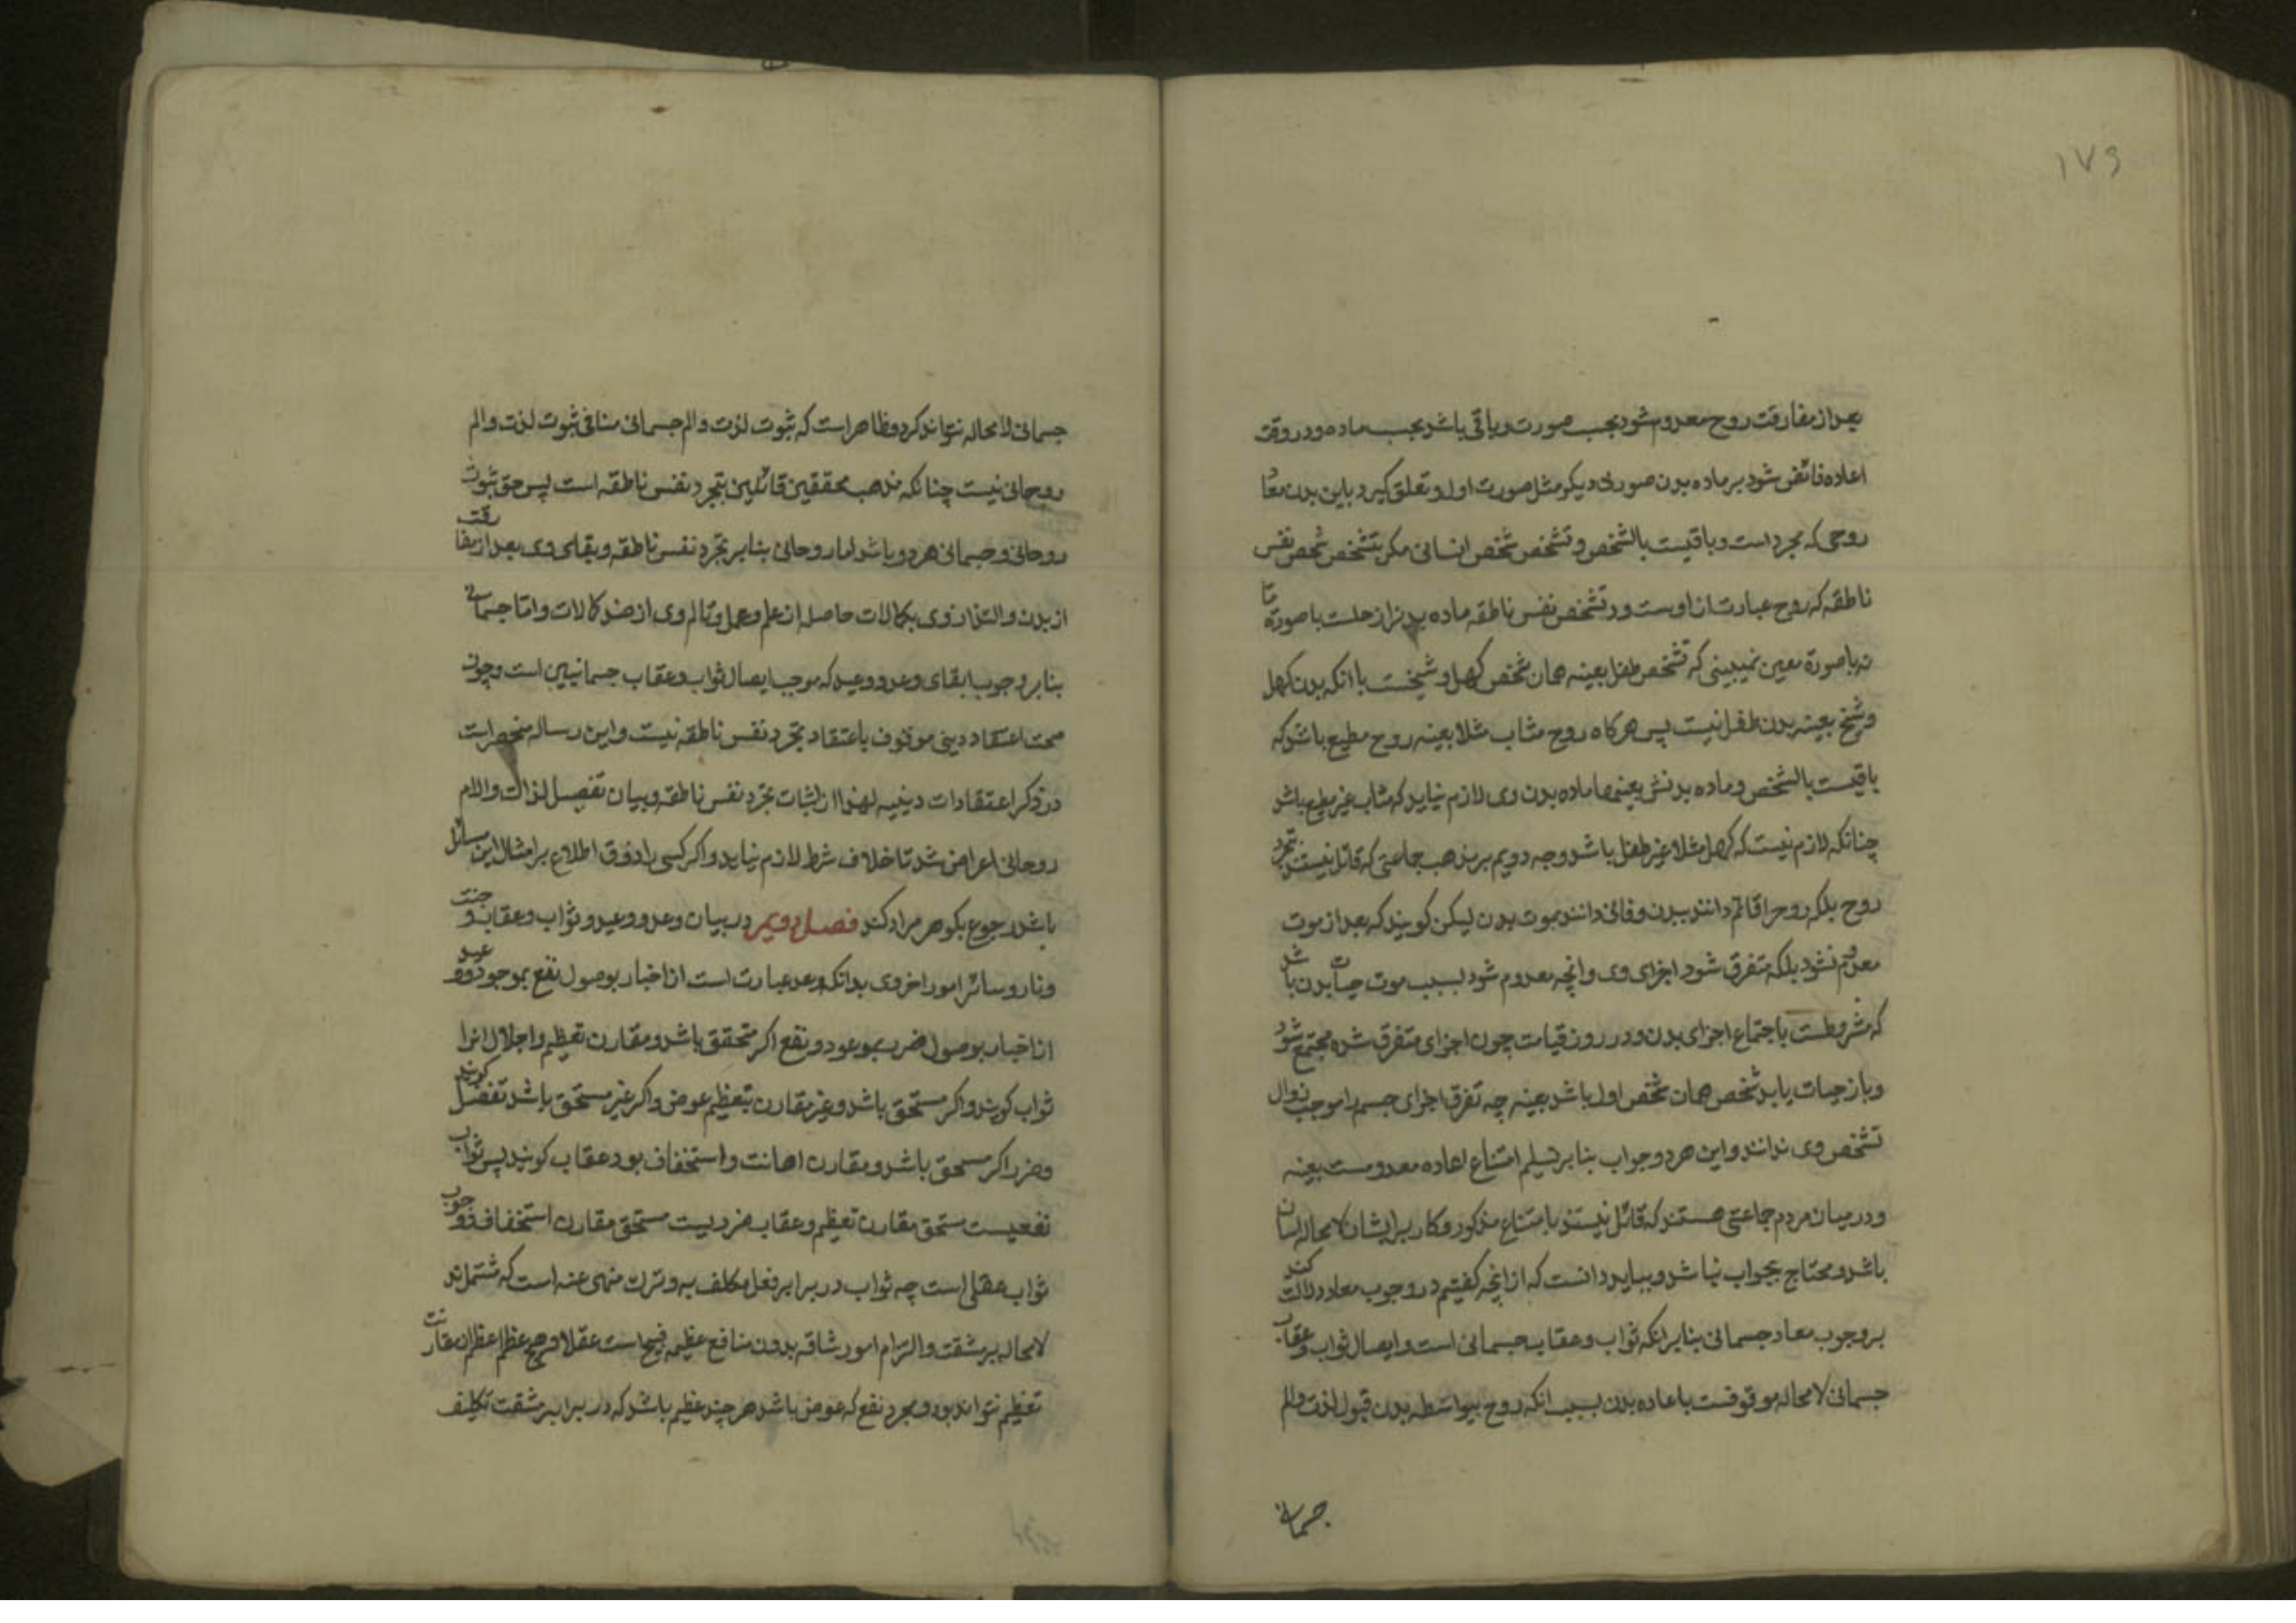 ۱۷۹
بعد از مفارقت روح معدوم شود بحسب صورت و باقی باشد بحسب ماده و در وقت
اعاده فائض شود بر ماده بدن صورتی دیکر مثل صورت اول و تعلق کیرد باین بدن معاد
روحی که مجرد است و باقیست بالشخص و تشخص شخص انسانی مکر بتشخص نفس
ناطقه که روح عبارت از اوست و در تشخص نفس ناطقه ماده بدنز از حلست با صورة ما
نه با صورة معین نمیبینی که تشخص طفل بعینه همان شخص کهل و شیخست با انکه بدن کهل
و شیخ بعینه بدن طفل نیست پس هرکاه روح مثاب مثلا بعینه روح مطیع باشد که
باقیست بالشخص و ماده بدنش بعینها ماده بدن وی لازم نیاید که مثاب غیر مطیع باشد
چنانکه لازم نیست که کهل مثلا غیر طفل باشد وجه دویم بر مذهب جماعتی که قائل نیستند بتجرد
روح بلکه روح را قائم دانند ببدن و فانی دانند بموت بدن لیکن کویند که بعد از موت
معدوم نشود بلکه متفرق شود اجزای وی و انچه معدوم شود بسبب موت حیات بدن باشد
که مشروطست باجتماع اجزای بدن و در روز قیامت چون اجزای متفرق شده مجتمع شود
و باز حیات یابد شخص همان شخص اول باشد بعینه چه تفرق اجزای جسم را موجب زوال
تشخص وی ندانند و این هر دو جواب بنابر تسلیم امتناع اعاده معدومست بعینه
و در میان مردم جماعتی هستند که قائل نیستند بامتناع مذکور و کار بر ایشان لا محاله اسان
باشد و محتاج بجواب نباشد و بباید دانست که از انچه کفتیم در وجوب معاد دلالت کند
بر وجوب معاد جسمانی بنابر انکه ثواب و عقاب جسمانی است و ایصال ثواب و عقاب
جسمانی لا محاله موقوفست باعاده بدن بسبب انکه روح بیواسطه بدن قبول لذت و الم
جسمانی
جسمانی لا محاله نتواند کرد و ظاهر است که ثبوت لذت و الم جسمانی منافی ثبوت لذت و الم
روحانی نیست چنانکه مذهب محققین قائلین بتجرد نفس ناطقه است پس حق ثبوت
روحانی و جسمانی هر دو باشد اما روحانی بنابر تجرد نفس ناطقه و بقای وی بعد از مفارقت
از بدن و التذاذ وی بکمالات حاصله از علم و عمل و تالم وی از ضد کمالات و اما جسمانی
بنابر وجوب ابقای وعد و وعید که موجب ایصال ثواب و عقاب جسمانیین است و چون
صحت اعتقاد دینی موقوف باعتقاد تجرد نفس ناطقه نیست و این رساله منحصر است
در ذکر اعتقادات دینیه لهذا از اثبات تجرد نفس ناطقه و بیان تفصیل لذات و الام
روحانی اعراض شد تا خلاف شرط لازم نیاید و اکر کسی را ذوق اطلاع بر امثال این مسائل
باشد رجوع بکوهر مراد کند فصل دویم در بیان وعد و وعید و ثواب و عقاب و جنت
و نار و سائر امور اخروی بدانکه وعد عبارت است از اخبار بوصول نفع بموعود و وعید
از اخبار بوصول ضرر بموعود و نفع اکر مستحق باشد و مقارن تعظیم و اجلال انرا
ثواب کویند و اکر مستحق باشد و غیر مقارن بتعظیم عوض و اکر غیر مستحق باشد تفضل کویند
و ضرر اکر مستحق باشد و مقارن اهانت و استخفاف بود عقاب کویند پس ثواب
نفعیست مستحق مقارن تعظیم و عقاب ضرریست مستحق مقارن استخفاف و وجوب
ثواب عقلی است چه ثواب در برابر فعل مکلف به و ترک منهی عنه است که مشتملند
لا محاله بر مشقت و التزام امور شاقه بدون منافع عظیمه قبیح است عقلا و هیچ عظم اعظم از مقارنت
تعظیم نتواند بود و مجرد نفع که عوض باشد هر چند عظیم باشد که در برابر مشقت تکلیف